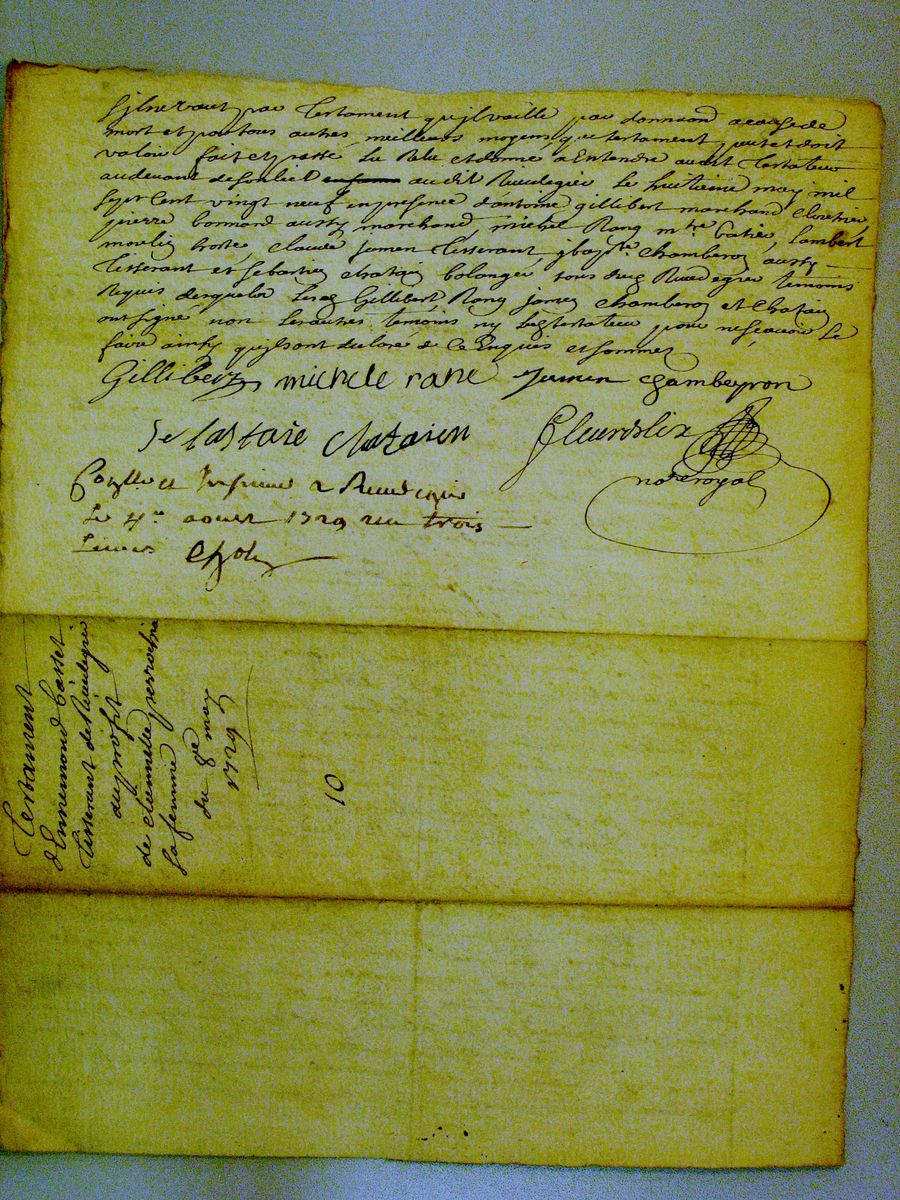 sil ne vaut par testament qu'il vaille par donnaon a cause de
mort et par tous autres meilleurs moyens que testament peut et doit
valoir fait et passé Lu Relu et donné a Entendre audit testateur
au devant de son lict audit Rivedegier Le huitieme may mil
sept Cent vingt neuf en presence d'antoine gillibert marchand
pierre bonnard aussy marchand, michel Rang mtre Lambert
moulin hoste, claude jamen tisserant jbapte chamberon aussy
tisserant et sebastien chatain bolanger tous dud Rivedegier temoins
Requis desquels Lesd Gillibert, Rang jamen chamberon et chatain
ont signé non Les autres temoins ny Led testateur pour ne sçavoir Le
faire ainsy qu'ils ont declaré de ce Enquis et sommes
Gillibert michele rane Jamen chambeyron
chataien fleurdelix
notre royal
Conlle et Insinué a Rivedegier
Le 4me aoust 1729 recu trois
Livres
Testament
d'Ennemond
tisserant de Rivedegier
du profit
de
sa femme
du 8e may
1729
10